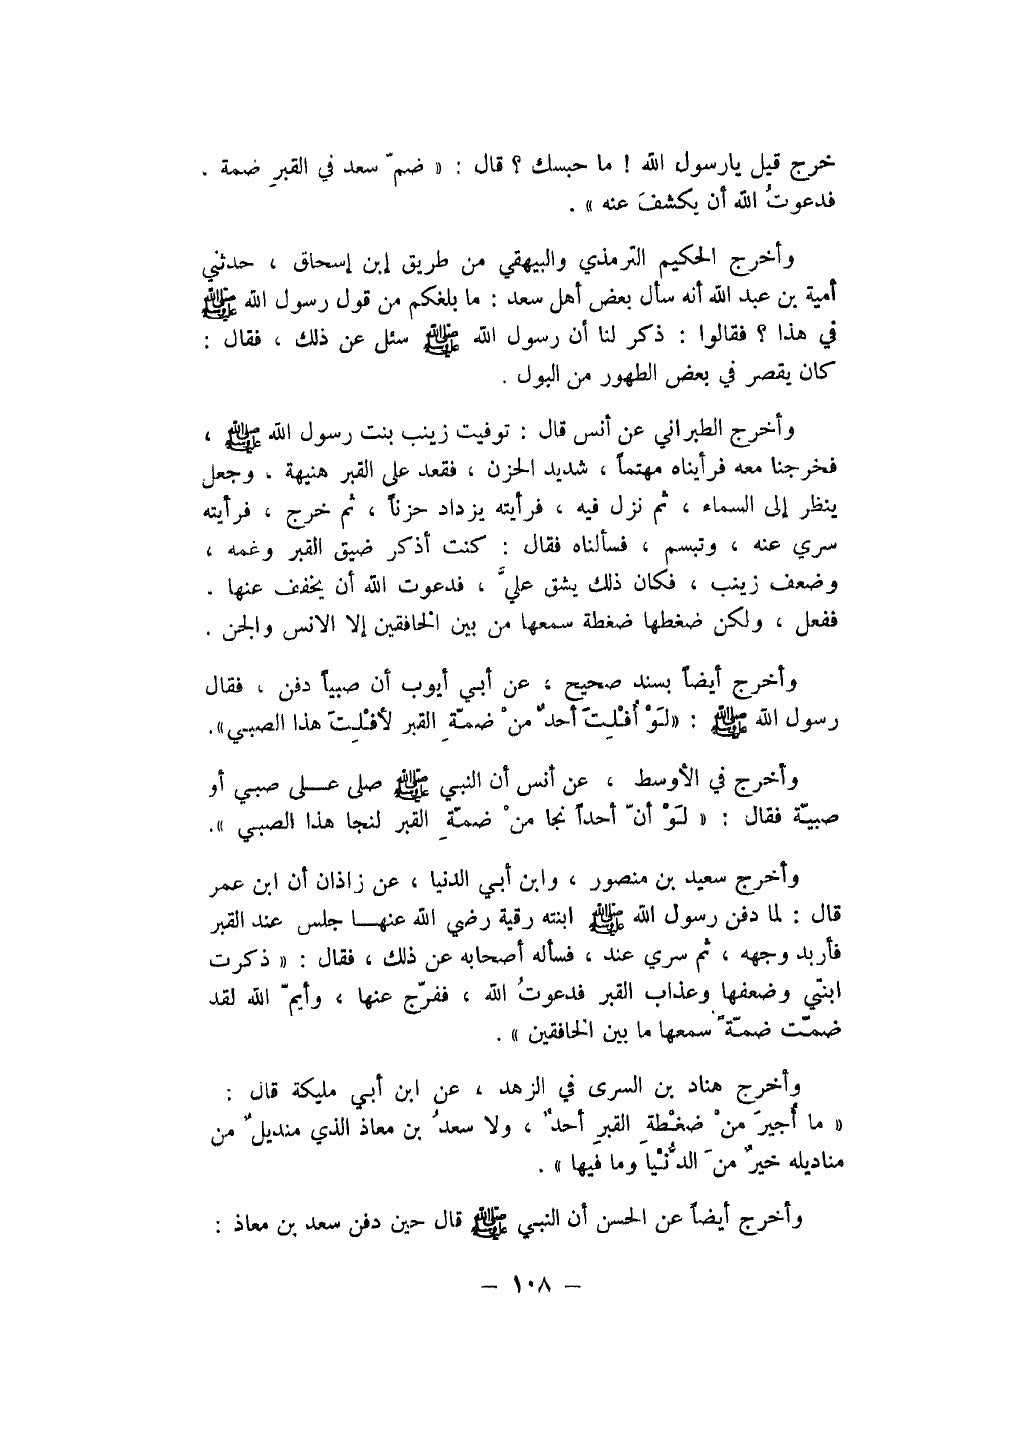 خرج قيل يارسول الله ! ما حبسك ؟ قال : « ضمّ سعد في القبرِ ضمة .
فدعوتُ الله أن يكشفَ عنه » .
وأخرج الحكيم الترمذي والبيهقي من طريق إبن إسحاق ، حدثني
أمية بن عبد الله أنه سأل بعض أهل سعد : ما بلغكم من قول رسول الله ﷺ
في هذا ؟ فقالوا : ذكر لنا أن رسول الله ﷺ سئل عن ذلك ، فقال :
كان يقصر في بعض الطهور من البول .
وأخرج الطبراني عن أنس قال : توفيت زينب بنت رسول الله ﷺ ،
فخرجنا معه فرأيناه مهتماً ، شديد الحزن ، فقعد على القبر هنيهة . وجعل
ينظر إلى السماء ، ثم نزل فيه ، فرأيته يزداد حزناً ، ثم خرج ، فرأيته
سري عنه ، وتبسم ، فسألناه فقال : كنت أذكر ضيق القبر وغمه ،
وضعف زينب ، فكان ذلك يشق عليَّ ، فدعوت الله أن يخفف عنها .
ففعل ، ولكن ضغطها ضغطة سمعها من بين الخافقين إلا الانس والجن .
وأخرج أيضاً بسند صحيح ، عن أبي أيوب أن صبياً دفن ، فقال
رسول الله ﷺ : «لَوْ أُفْلِتَ أحدٌ منْ ضمّةِ القبر لأفْلِتَ هذا الصبي».
وأخرج في الأوسط ، عن أنس أن النبي ﷺ صلى على صبي أو
صبيّة فقال : « لَوْ أنّ أحداً نجا منْ ضمّةِ القبر لنجا هذا الصبي ».
وأخرج سعيد بن منصور ، وابن أبي الدنيا ، عن زاذان أن ابن عمر
قال : لما دفن رسول الله ﷺ ابنته رقية رضي الله عنها جلس عند القبر
فأربد وجهه ، ثم سري عند ، فسأله أصحابه عن ذلك ، فقال : « ذكرت
ابنتي وضعفها وعذاب القبر فدعوتُ الله ، ففرّج عنها ، وأيمّ الله لقد
ضمّت ضمّةً سمعها ما بين الخافقين » .
وأخرج هناد بن السرى في الزهد ، عن ابن أبي مليكة قال :
« ما أُجيرَ منْ ضغْطةِ القبرِ أحدٌ ، ولا سعدُ بن معاذ الذي منديلٌ من
مناديله خيرٌ منَ الدُّنْيا وما فيها » .
وأخرج أيضاً عن الحسن أن النبي ﷺ قال حين دفن سعد بن معاذ :
– ١٠٨ –